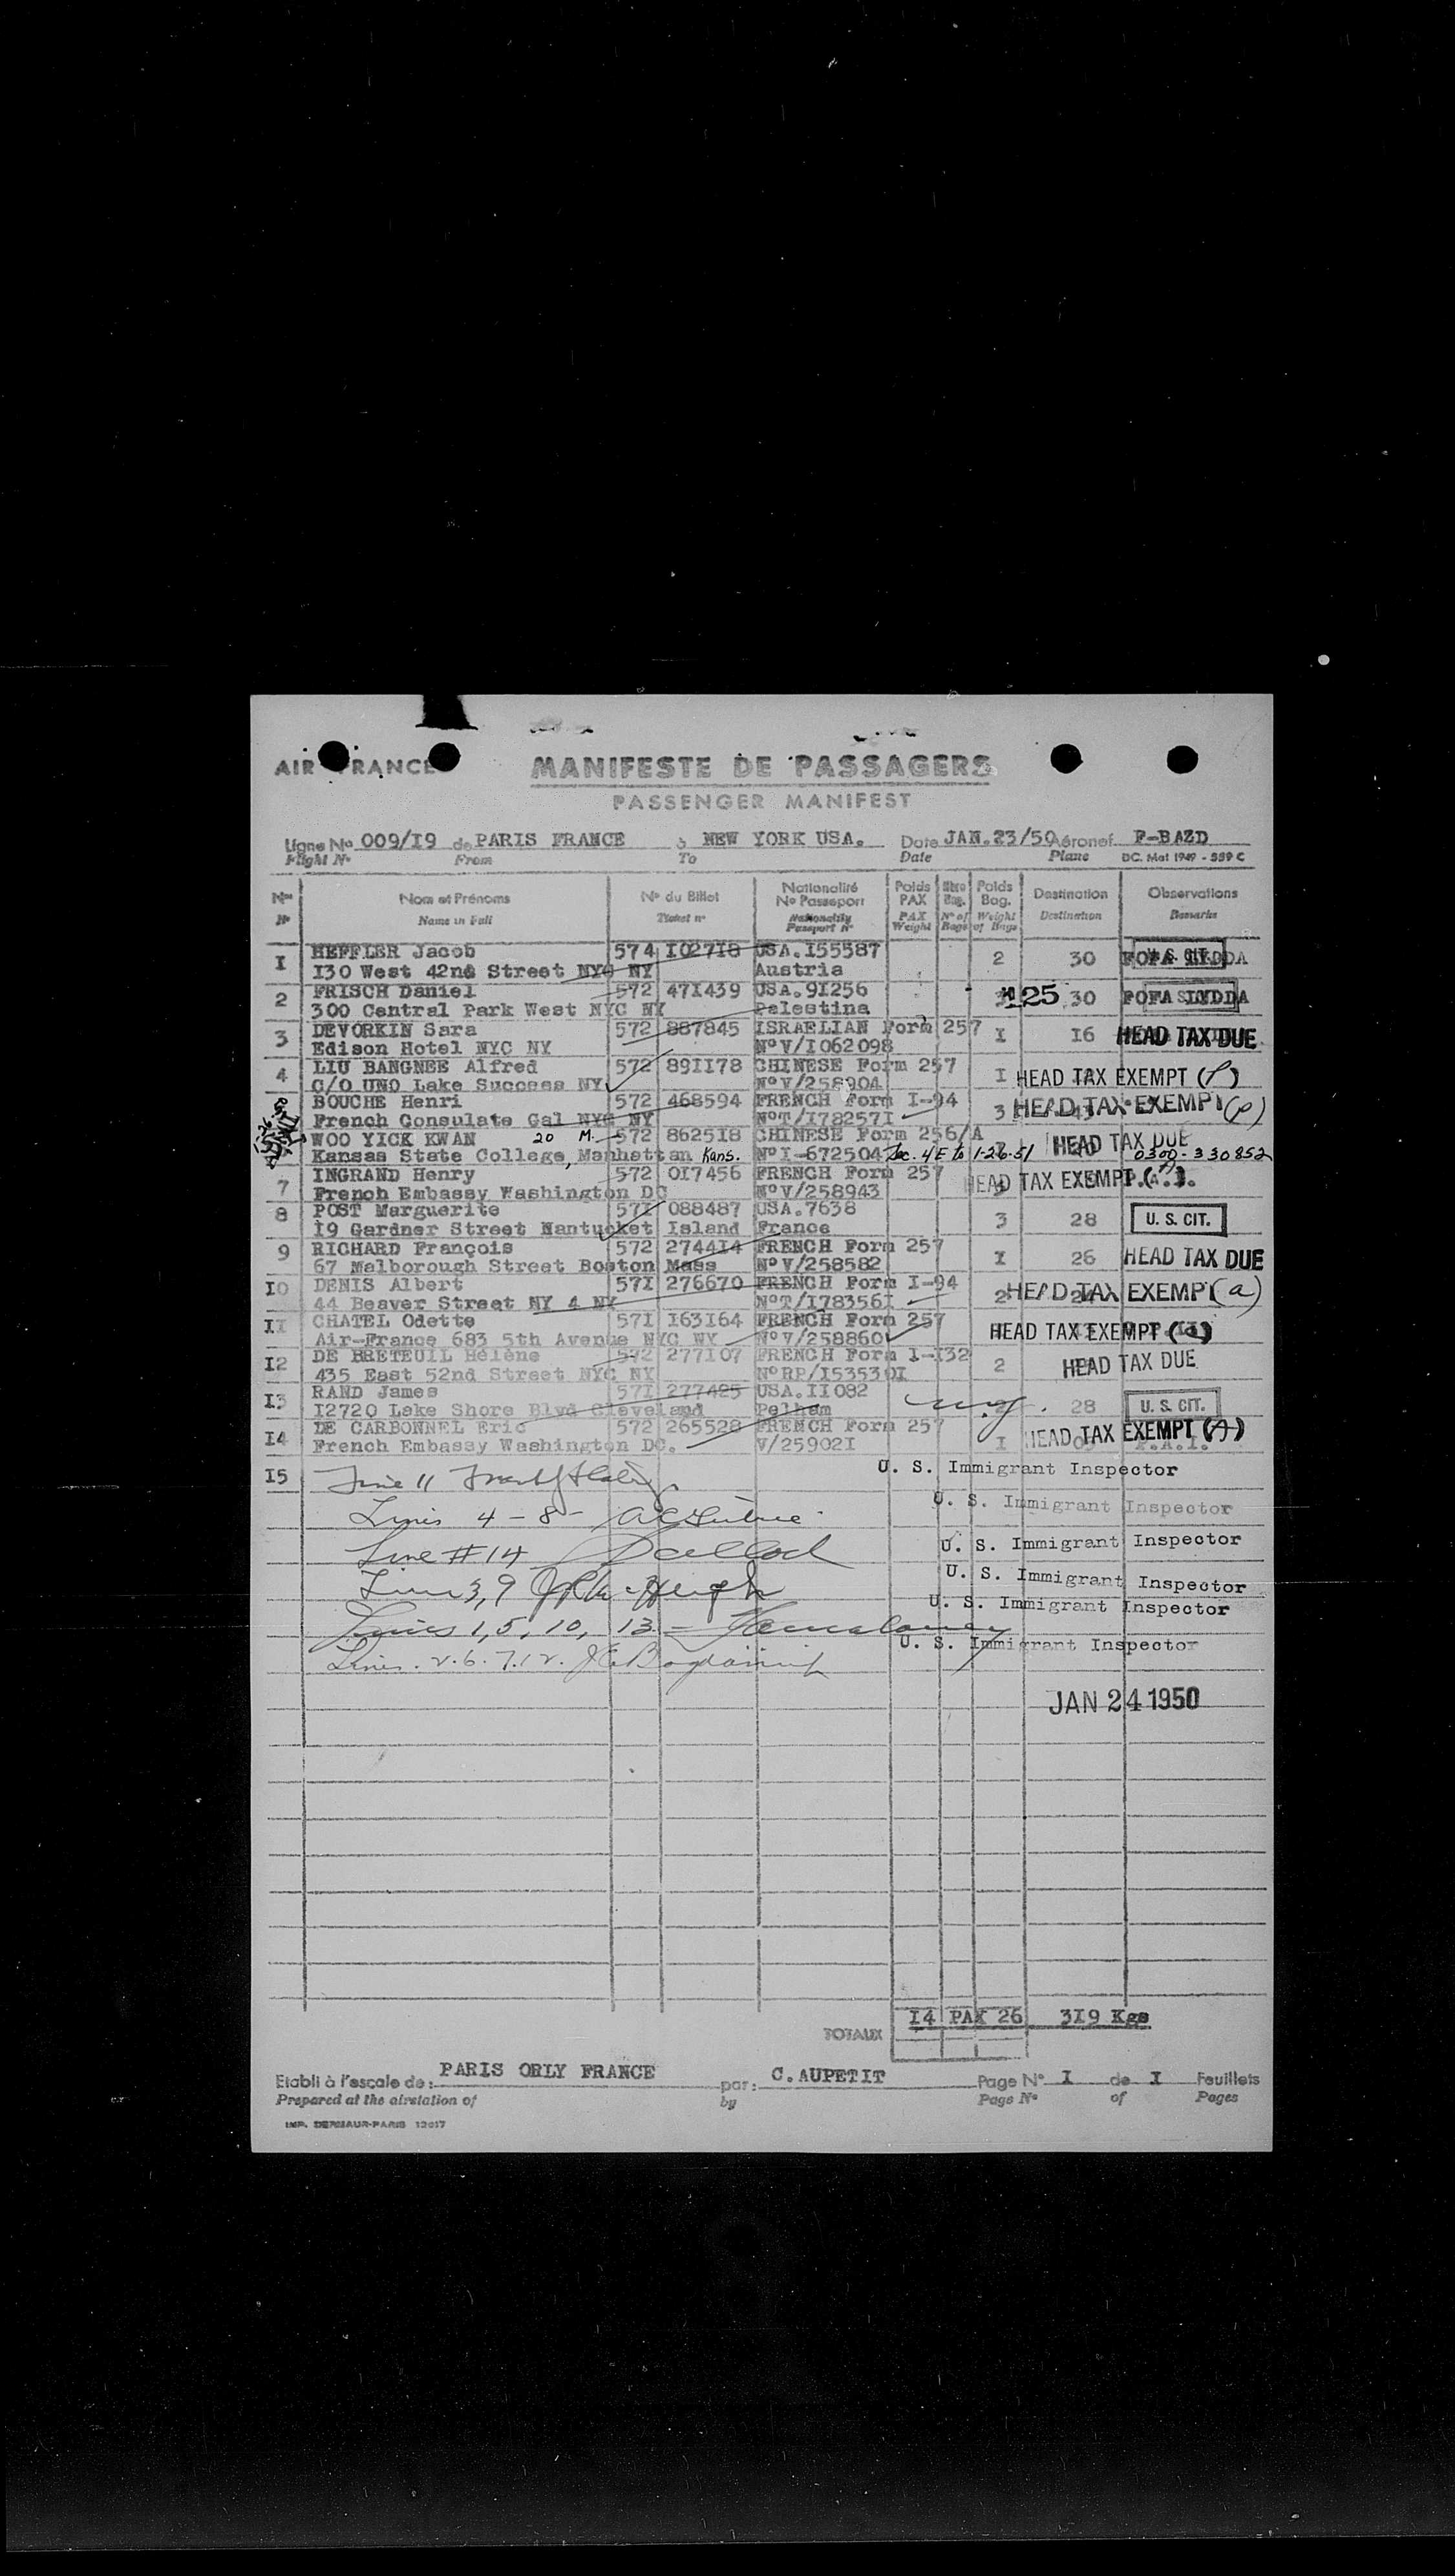 AIR FRANCE
MANIFESTE DE PASSAGERS
PASSENGER MANIFEST
Ligne No 009/I9 de PARIS FRANCE à NEW YORK USA. Date JAN.23/50 Aéronef F-BAZD
Flight No From To Date Plane DC. Mat 1949 - 559 C
Nos Nom et Prénoms No du Billet Nationalité No Passeport Poids PAX Nbre Bag. Poids Bag. Destination Observations
No Name in Full Ticket no Nationality Passport No PAX Weight No of Bags Weight of Bags Destination Remarks
I HEFFLER Jacob 574 I027I8 USA.I55587 2 30 U. S. CIT.
I30 West 42nd Street NYC NY Austria
2 FRISCH Daniel 572 47I439 USA.9I256 25 30
300 Central Park West NYC NY Palestina
3 DEVORKIN Sara 572 887845 ISRAELIAN Form 257 I I6 HEAD TAX DUE
Edison Hotel NYC NY NoV/I062098
4 LIU BANGNEE Alfred 572 89II78 CHINESE Form 257 I HEAD TAX EXEMPT (P)
C/O UNO Lake Success NY NoV/258904
5 BOUCHE Henri 572 468594 FRENCH Form I-94 3 HEAD TAX EXEMPT (P)
French Consulate Gal NYC NY NoT/I78257I
WOO YICK KWAN 20 M. 572 8625I8 CHINESE Form 256/A HEAD TAX DUE
Kansas State College, Manhattan Kans. NoI-672504 Sec. 4E to 1-26-51 0300-330852
7 INGRAND Henry 572 0I7456 FRENCH Form 257 HEAD TAX EXEMPT (A)
French Embassy Washington DC NoV/258943
8 POST Marguerite 57I 088487 USA.7638 3 28 U. S. CIT.
I9 Gardner Street Nantucket Island France
9 RICHARD François 572 2744I4 FRENCH Form 257 I 26 HEAD TAX DUE
67 Malborough Street Boston Mass NoV/258582
I0 DENIS Albert 57I 276670 FRENCH Form I-94 2 HEAD TAX EXEMPT (a)
44 Beaver Street NY 4 NY NoT/I78356I
II CHATEL Odette 57I I63I64 FRENCH Form 257 HEAD TAX EXEMPT (a)
Air-France 683 5th Avenue NYC NY NoV/258860
I2 DE BRETEUIL Hélène 572 277I07 FRENCH Form I-I32 2 HEAD TAX DUE
435 East 52nd Street NYC NY NoRP/I5353OI
I3 RAND James 57I 277425 USA.II082 28 U. S. CIT.
I2720 Lake Shore Blvd Cleveland Pelham
I4 DE CARBONNEL Eric 572 265528 FRENCH Form 257 I HEAD TAX EXEMPT (A)
French Embassy Washington DC. V/25902I
I5 Line 11 U. S. Immigrant Inspector
Lines 4 - 8 - U. S. Immigrant Inspector
Line #14 U. S. Immigrant Inspector
Lines 3, 9 U. S. Immigrant Inspector
Lines 1, 5, 10, 13 = U. S. Immigrant Inspector
Lines . 2. 6. 7. 12. U. S. Immigrant Inspector
JAN 24 1950
TOTAUX I4 PAX 26 3I9 Kgs
Etabli à l'escale de: PARIS ORLY FRANCE par: C. AUPETIT Page No I de I Feuillets
Prepared at the airstation of by Page No of Pages